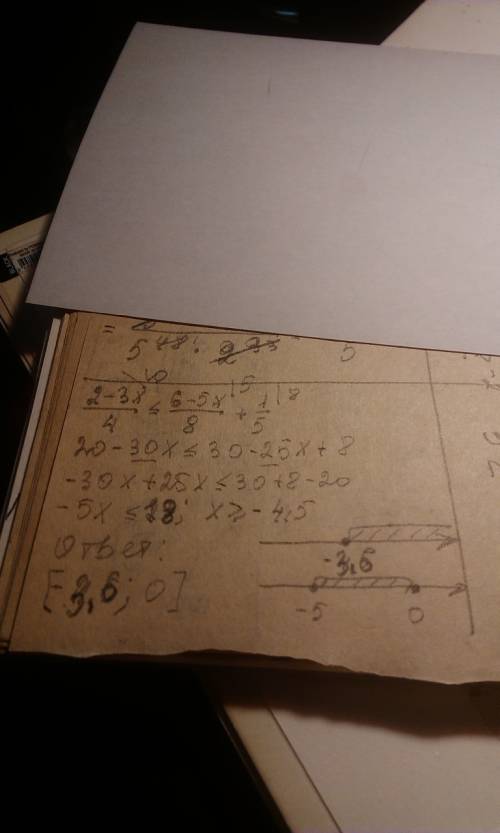 =
5⁴⁸ · 2³³ 5
(2-3x)/4 \10 ≤ (6-5x)/8 |5 + 1/5 |8
20-30x≤30-25x+8
-30x+25x≤30+8-20
-5x ≤18; x≥-4,5
Ответ:
[-3,6; 0]
-3,6
-5 0